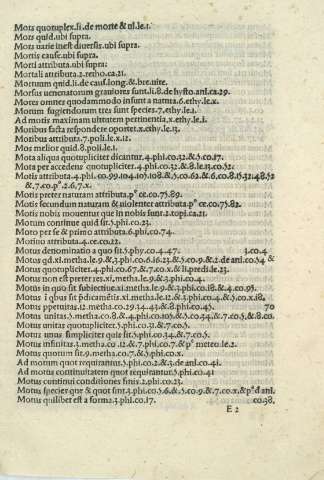 Mors quotuplex.li.de morte & ui.le.1.
Mors quid.ubi supra.
Mors uarie inest diuersis.ubi supra.
Mortis causę.ubi supra.
Morti attributa.ubi supra.
Mortali attributa.2.retho.ca.21.
Mortuum quid.li.de caus.long.& bre.uite.
Morsus uenenatorum grauiores sunt.li.8.de hysto.anl.ca.29.
Mores omnes quodammodo insunt a natura.6.ethy.le.x.
Morum fugiendorum tres sunt species.7.ethy.le.1.
Ad motis maximam uirtutem pertinentia.x.ethy.le.1.
Moribus facta respondere oportet.x.ethy.le.13.
Moribus attributa.7.poli.le.x.12.
Mos melior quid.8.poli.le.1.
Mota aliqua quotupliciter dicantur.4.phi.co.32.&.5.co.17.
Mota per accedens quotupliciter.4.phi.co.32.& 8.le.13.co.52.
Motis attributa.4.phi.co.99.104.105.108.&.5.co.62.&.6.co.8.15.32.48.52
&.7.co.pº.2.6.7.x.
Motis preter naturam attributa.pº ce.co.75.89.
Motis secundum naturam & uiolenter attributa pº ce.co.75.82.
Motis nobis mouentur que in nobis sunt.2.topi.ca.21.
Motum continue quid sit.5.phi.co.23.
Moto per se & primo attributa.6.phi.co.74.
Motiuo attributa.4.ce.co.22.
Motus denominatio a quo sit.5.phy.co.4.47. 3.co.4.
Motus qd.xi.metha.le.9.&.3.phi.co.6.16.23.&.5.co.9.&.2.de ani.co.54 &
Motus quotupliciter.4.phi.co.67.&.7.co.x.& li.predi.le.23.
Motus non est preter res.xi.metha.le.9.&.3.phi.co.4.
Motus in quo sit subiectiue.xi.metha.le.9.&.3.phi.co.18.&.4.co.95.
Motus i qbus sit pdicamētis.xi.metha.le.12.&.3.phi.co.4.&.5.co.x.18.
Motus ppetuitas.12.metha.co.29.34.43.&.8.phi.co.45. 70
Motus unitas.5.metha.co.8.&.4.phi.co.105.&.5.co.34.&.7.co.5.&.8.co.
Motus unitas quotupliciter.5.phi.co.31.&.7.co.5.
Motus unus simpliciter quis sit.5.phi.co.34.&.7.co.5.
Motus infinitus.3.metha.co.12.&.7.phi.co.7.& pº meteo.le.2.
Motus quotum sit.9.metha.co.7.&.5.phi.co.x.
Ad motum quot requirantur.5.phi.co.2.&.3.de anl.co.41.
Ad motus continuitatem quot requirantur.5.phi.co.41
Motus continui conditiones finis.2.phi.co.23.
Motus species que & quot sint.3.phi.co.5.6.&.5.co.9.&.7.co.x.&.pº.d ani.
Motus quilibet est a forma.3.phi.co.17. co.38.
E 2